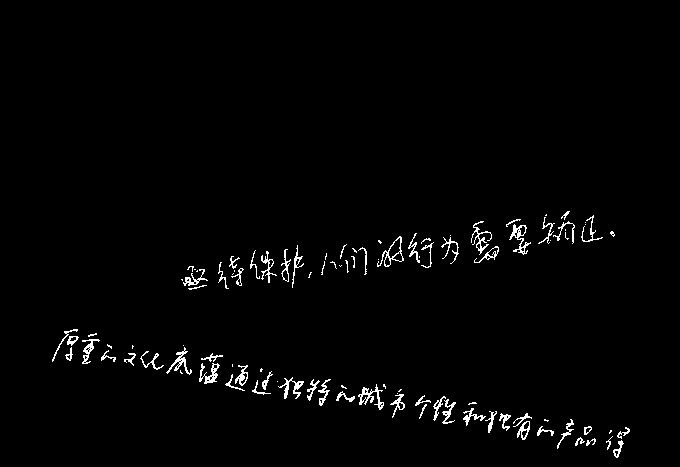 亟待保护,人们的行为需要矫正。
厚重的文化底蕴通过独特的城市个性和独有的产品得